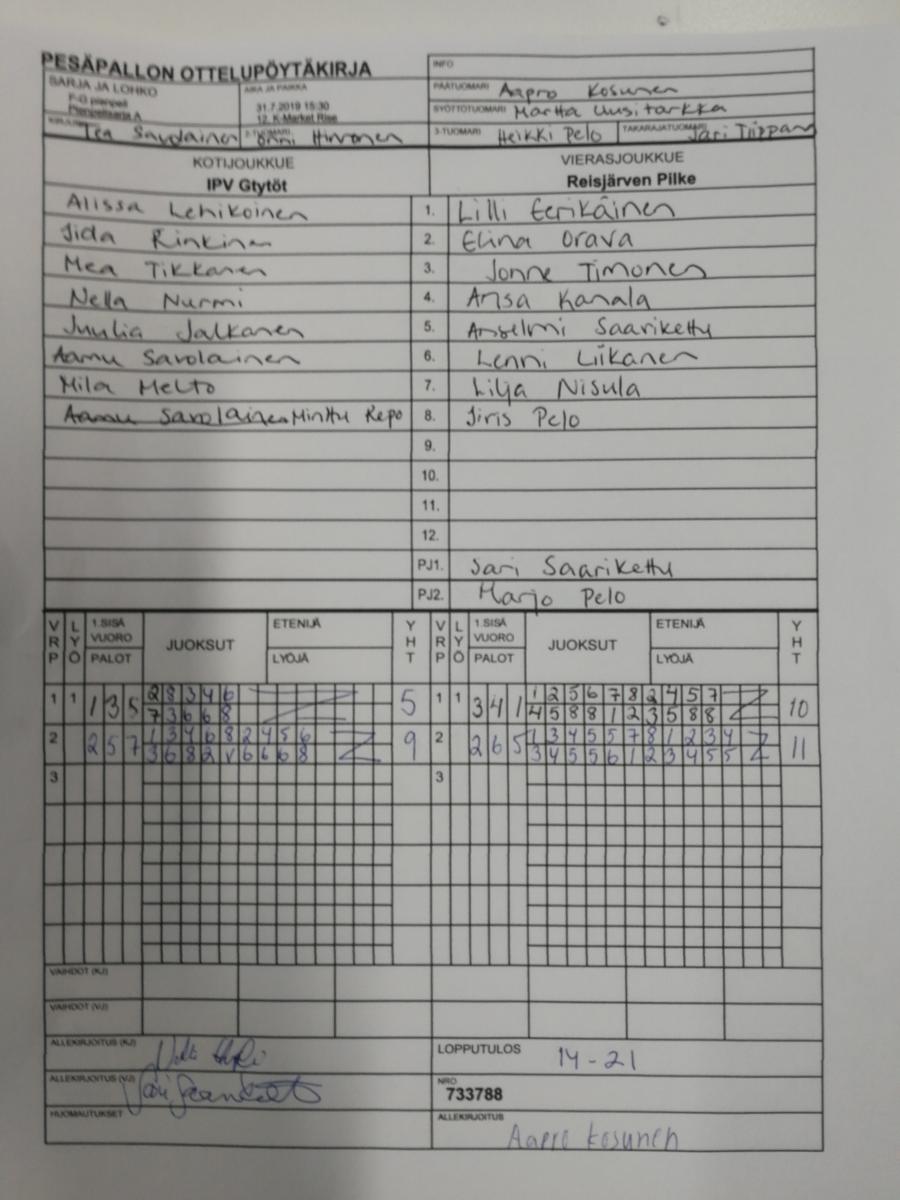 PESÄPALLON OTTELUPÖYTÄKIRJA
INFO
SARJA JA LOHKO
F-G pienpeli
Pienpelisarja A
AIKA JA PAIKKA
31.7.2019 15:30
12. K-Market Rise
PÄÄTUOMARI Aapro Kosunen
SYÖTTÖTUOMARI Martta Uusitarkka
KIRJURI Tea Savolainen
2-TUOMARI Onni Hirvonen
3-TUOMARI Heikki Pelo
TAKARAJATUOMARI Jari Tiippana
KOTIJOUKKUE
IPV Gtytöt
VIERASJOUKKUE
Reisjärven Pilke
Alissa Lehikoinen 1. Lilli Eerikäinen
Iida Rinkinen 2. Elina Orava
Mea Tikkanen 3. Jonne Timonen
Nella Nurmi 4. Ansa Kanala
Juulia Jalkanen 5. Anselmi Saarikettu
Aamu Savolainen 6. Lenni Liikanen
Mila Melto 7. Lilja Nisula
Aamu Savolainen Minttu Repo 8. Iiris Pelo
9.
10.
11.
12.
PJ1. Sari Saarikettu
PJ2. Marjo Pelo
VRP LYÖ 1.SISÄ VUORO PALOT JUOKSUT ETENIJÄ LYÖJÄ YHT VRP LYÖ 1.SISÄ VUORO PALOT JUOKSUT ETENIJÄ LYÖJÄ YHT
1 1 1 3 5 2 8 3 4 6 5 1 1 3 4 1 1 2 5 6 7 8 2 4 5 7 10
7 3 6 6 8 4 5 8 8 1 2 3 5 8 8
2 2 5 7 1 3 4 6 8 2 4 5 6 9 2 2 6 5 1 3 4 5 5 7 8 1 2 3 4 11
3 6 8 2 V 6 6 6 8 3 4 5 5 6 1 2 3 4 5 5
3 3
VAIHDOT (KJ)
VAIHDOT (VJ)
ALLEKIRJOITUS (KJ)
LOPPUTULOS 14-21
ALLEKIRJOITUS (VJ)
NRO
733788
HUOMAUTUKSET
ALLEKIRJOITUS
Aapro Kosunen